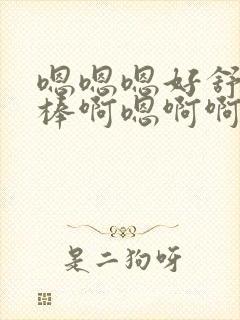 嗯嗯嗯好舒
棒啊嗯啊啊
是二狗呀